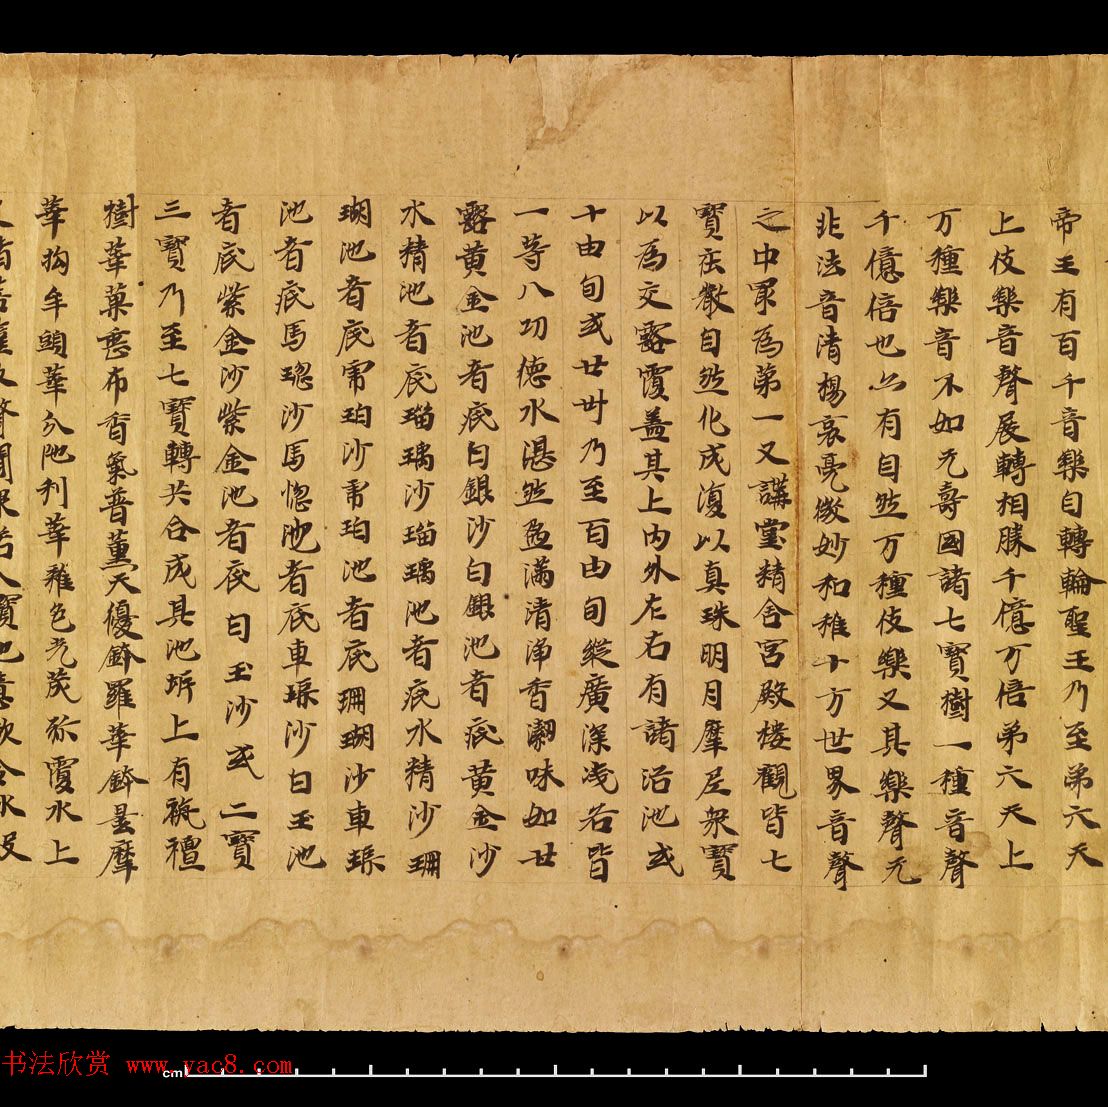 帝王有百千音樂自轉輪聖王乃至弟六天
上伎樂音聲展轉相勝千億万倍弟六天上
万種樂音不如无壽國諸七寶樹一種音聲
千億倍也亦有自然万種伎樂又其樂聲无
非法音清揚哀亮微妙和雅十方世界音聲
之中冣為第一又講堂精舍宮殿樓觀皆七
寶莊嚴自然化成復以真珠明月摩尼衆寶
以為交露覆蓋其上内外左右有諸浴池或
十由旬或廿卅乃至百由旬縱廣深浅若皆
一等八功德水湛然盈滿清淨香潔味如甘
露黄金池者底白銀沙白銀池者底黄金沙
水精池者底瑠璃沙瑠璃池者底水精沙珊
瑚池者底虎珀沙虎珀池者底珊瑚沙車璖
池者底馬瑙沙馬惱池者底車璖沙白玉池
者底紫金沙紫金池者底白玉沙或二寶
三寶乃至七寶轉共合成其池岸上有栴檀
樹華菓垂布香氣普薰天優鉢羅華鉢曇摩
華拘牟頭華分陁利華雜色光茂弥覆水上
又諸菩薩及聲聞衆若入寶池意欲令水没
书法欣赏 www.yac8.com
cm